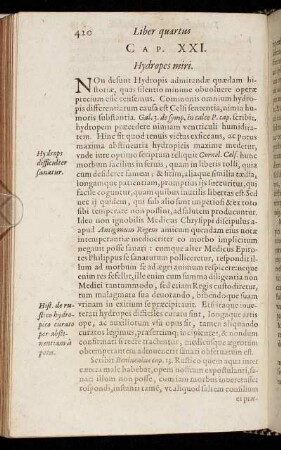 420 Liber quartus
CAP. XXI.
Hydropes miri.
NOn desunt Hydropis admirandæ quædam hi-
storiæ, quas silentio minime obuoluere operæ
precium esse censemus. Communis omnium hydro-
pis differentiarum causa est Celsi sententia, nimia hu-
moris substantia. Gal. 3. de symp. in calce 2. cap. scribit,
hydropem præcedere nimiam ventriculi humidita-
tem. Hinc fit quod tenuis victus exsiccans, ac potus
maxima abstinentia hydropis maxime medetur,
vnde iure optimo scriptum reliquit Cornel. Cels. hunc
morbum facilius in seruis, quam in liberis tolli, quia
cum desideret famem; & sitim, aliaque similia tædia,
longamque patientiam, promptius ijs succurritur, qui
facile coguntur, quam quibus inutilis libertas est. Sed
nec ij quidem, qui sub alio sunt imperio si ex toto
sibi temperare non possint, ad salutem producuntur.
Ideo non ignobilis Medicus Chrysippi discipulus a-
apud Antigonum Regem amicum quendam eius notæ
intemperantiæ mediocriter eo morbo implicitum
negauit posse sanari; cumque alter Medicus Epiro-
tes Philippus se sanaturum polliceretur, respondit
illum ad morbum se ad ægrotantis animum respicere: neque
eum res fefellit, ille enim cum summa diligentia non
Medici tantummodo, sed etiam Regis custodiretur,
tum malagmata sua deuorando, bibendoque suam
vrinam in exitium se præcipitauit. Etsi itaque inue-
terati hydropes difficiles curatu sint, longaque artis
ope, ac vsu assidua vix opus sit, tamen aliquando
curatos legimus, præsertimque incipientes, & nondum
confirmatos si recte tractentur, medicæque ægrotus
obtemperet, omnino admodum sanari obseruatum est.
Scribit Beniuenius cap. 13. Rustico quem aqua inter
cutem male habebat, opem nostram expostulanti, sa-
nari illum non posse, cum iam morbus inueterasset
respondi, instanti tamen, vt aliquod saltem consilium
ei præ-
Hydrops
difficulter
sanatur.
Hist. de ru-
stico hydro-
pico curato
per absti-
nentiam à
potu.